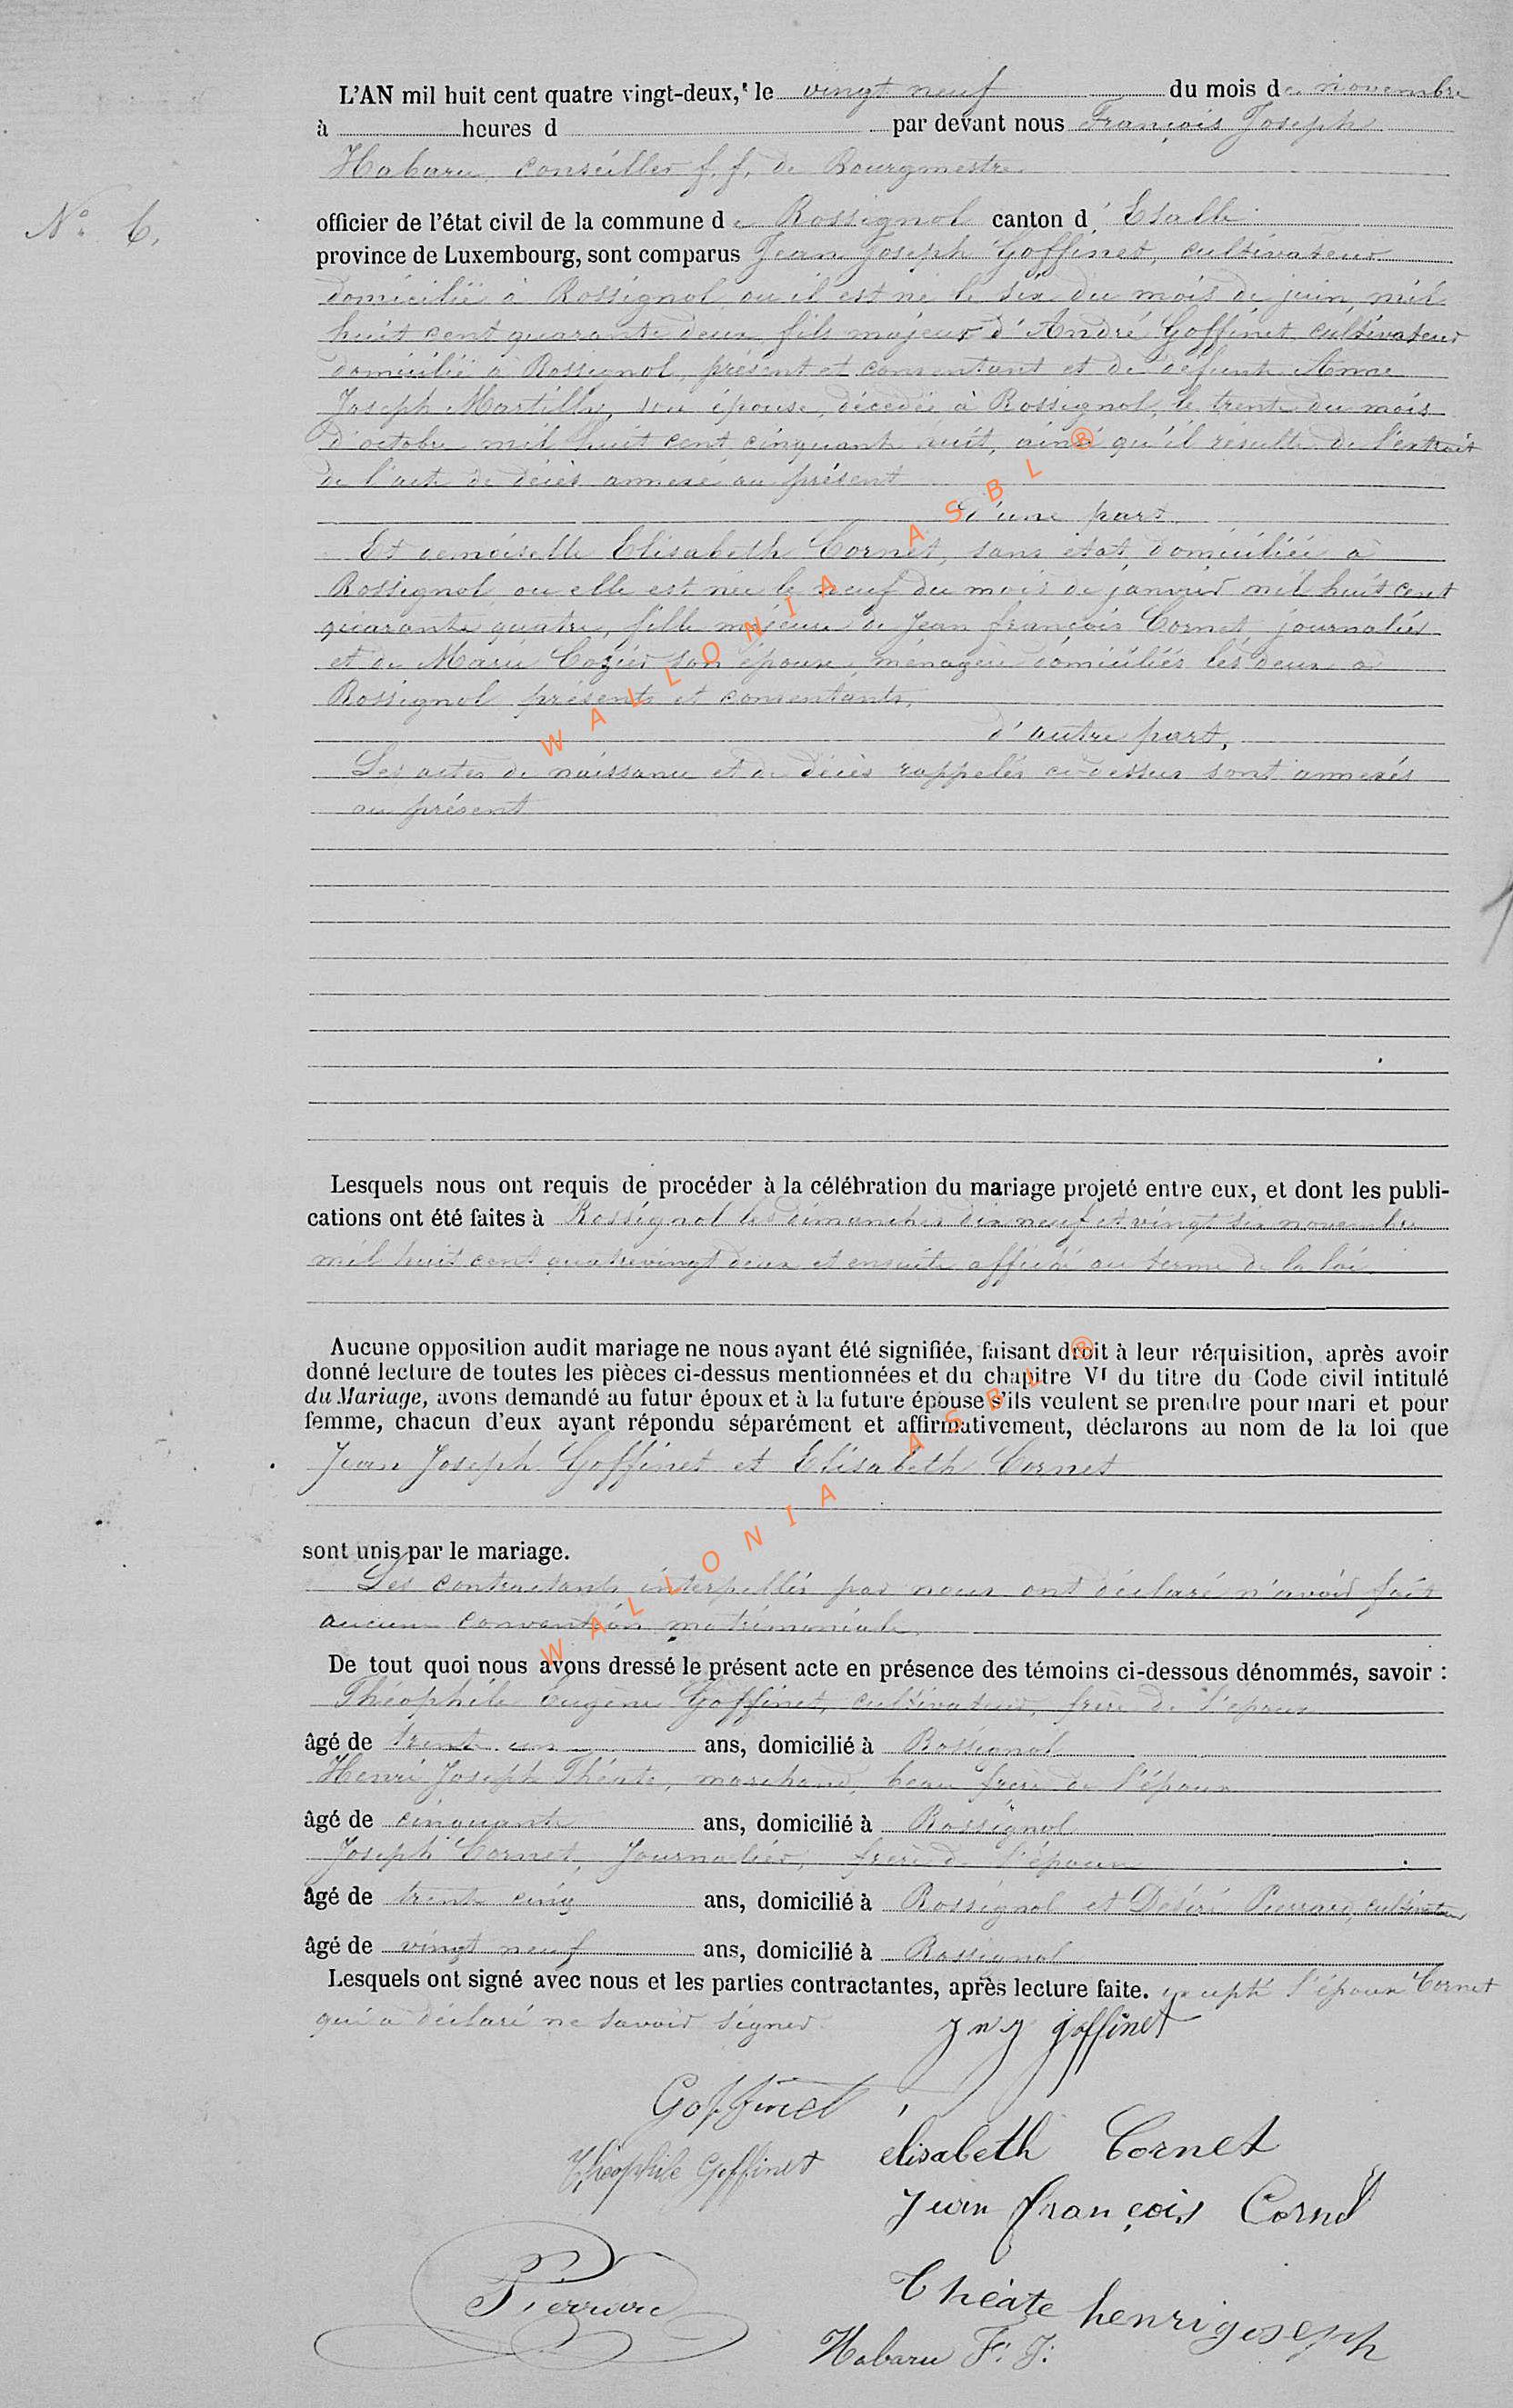 L'AN mil huit cent quatre vingt-deux, le vingt neuf du mois de novembre
à heures d par devant nous François Joseph
Habaru, conseiller f. f. de Bourgmestre
N° 6.
officier de l'état civil de la commune de Rossignol canton d' Etalle
province de Luxembourg, sont comparus Jean Joseph Goffinet, cultivateur
domicilié à Rossignol ou il est né le six du mois de juin mil
huit cent quarante deux fils majeur d'André Goffinet cultivateur
domicilié à Rossignol, présent et consentant et de défunte Anne
Joseph Martilly, son épouse, décédée à Rossignol, le trente du mois
d'octobre mil huit cent cinquante huit, ainsi qu'il résulte de l'extrait
de l'acte de décès annexé au présent
d'une part.
Et demoiselle Elisabeth Cornet, sans état, domiciliée à
Rossignol ou elle est née le neuf du mois de janvier mil huit cent
quarante quatre, fille majeure de Jean françois Cornet, journalier
et de Marie Cozier son épouse, ménagère domiciliés les deux à
Rossignol présents et consentants,
d'autre part,
Les actes de naissance et de décès rappelés ci-dessus sont annexés
au présent
Lesquels nous ont requis de procéder à la célébration du mariage projeté entre eux, et dont les publi-
cations ont été faites à Rossignol les dimanches dix neuf et vingt six novembre
mil huit cent quatrevingt deux et ensuite affiché au terme de la loi.
Aucune opposition audit mariage ne nous ayant été signifiée, faisant droit à leur réquisition, après avoir
donné lecture de toutes les pièces ci-dessus mentionnées et du chapitre VI du titre du Code civil intitulé
du Mariage, avons demandé au futur époux et à la future épouse s'ils veulent se prendre pour mari et pour
femme, chacun d'eux ayant répondu séparément et affirmativement, déclarons au nom de la loi que
Jean Joseph Goffinet et Elisabeth Cornet
sont unis par le mariage.
Les contractants interpellés par nous ont déclaré n'avoir fait
aucune convention matrimoniale.
De tout quoi nous avons dressé le présent acte en présence des témoins ci-dessous dénommés, savoir :
Théophile Eugène Goffinet, cultivateur, frère de l'époux
âgé de trente un ans, domicilié à Rossignol
Henri Joseph Théate, marchand, beau frère de l'époux
âgé de cinquante ans, domicilié à Rossignol
Joseph Cornet, Journalier, frère de l'épouse
âgé de trente cinq ans, domicilié à Rossignol et Désiré Pierrard, cultivateur
âgé de vingt neuf ans, domicilié à Rossignol
Lesquels ont signé avec nous et les parties contractantes, après lecture faite. excepté Cornet
qui a déclaré ne savoir signer.
J n J goffinet
Goffinet
elisabeth Cornet
Théophile Goffinet
Jean françois Cornet
Pierrard
Théate henri joseph
Habaru F. J.
WALLONIA ASBL ®
WALLONIA ASBL ®